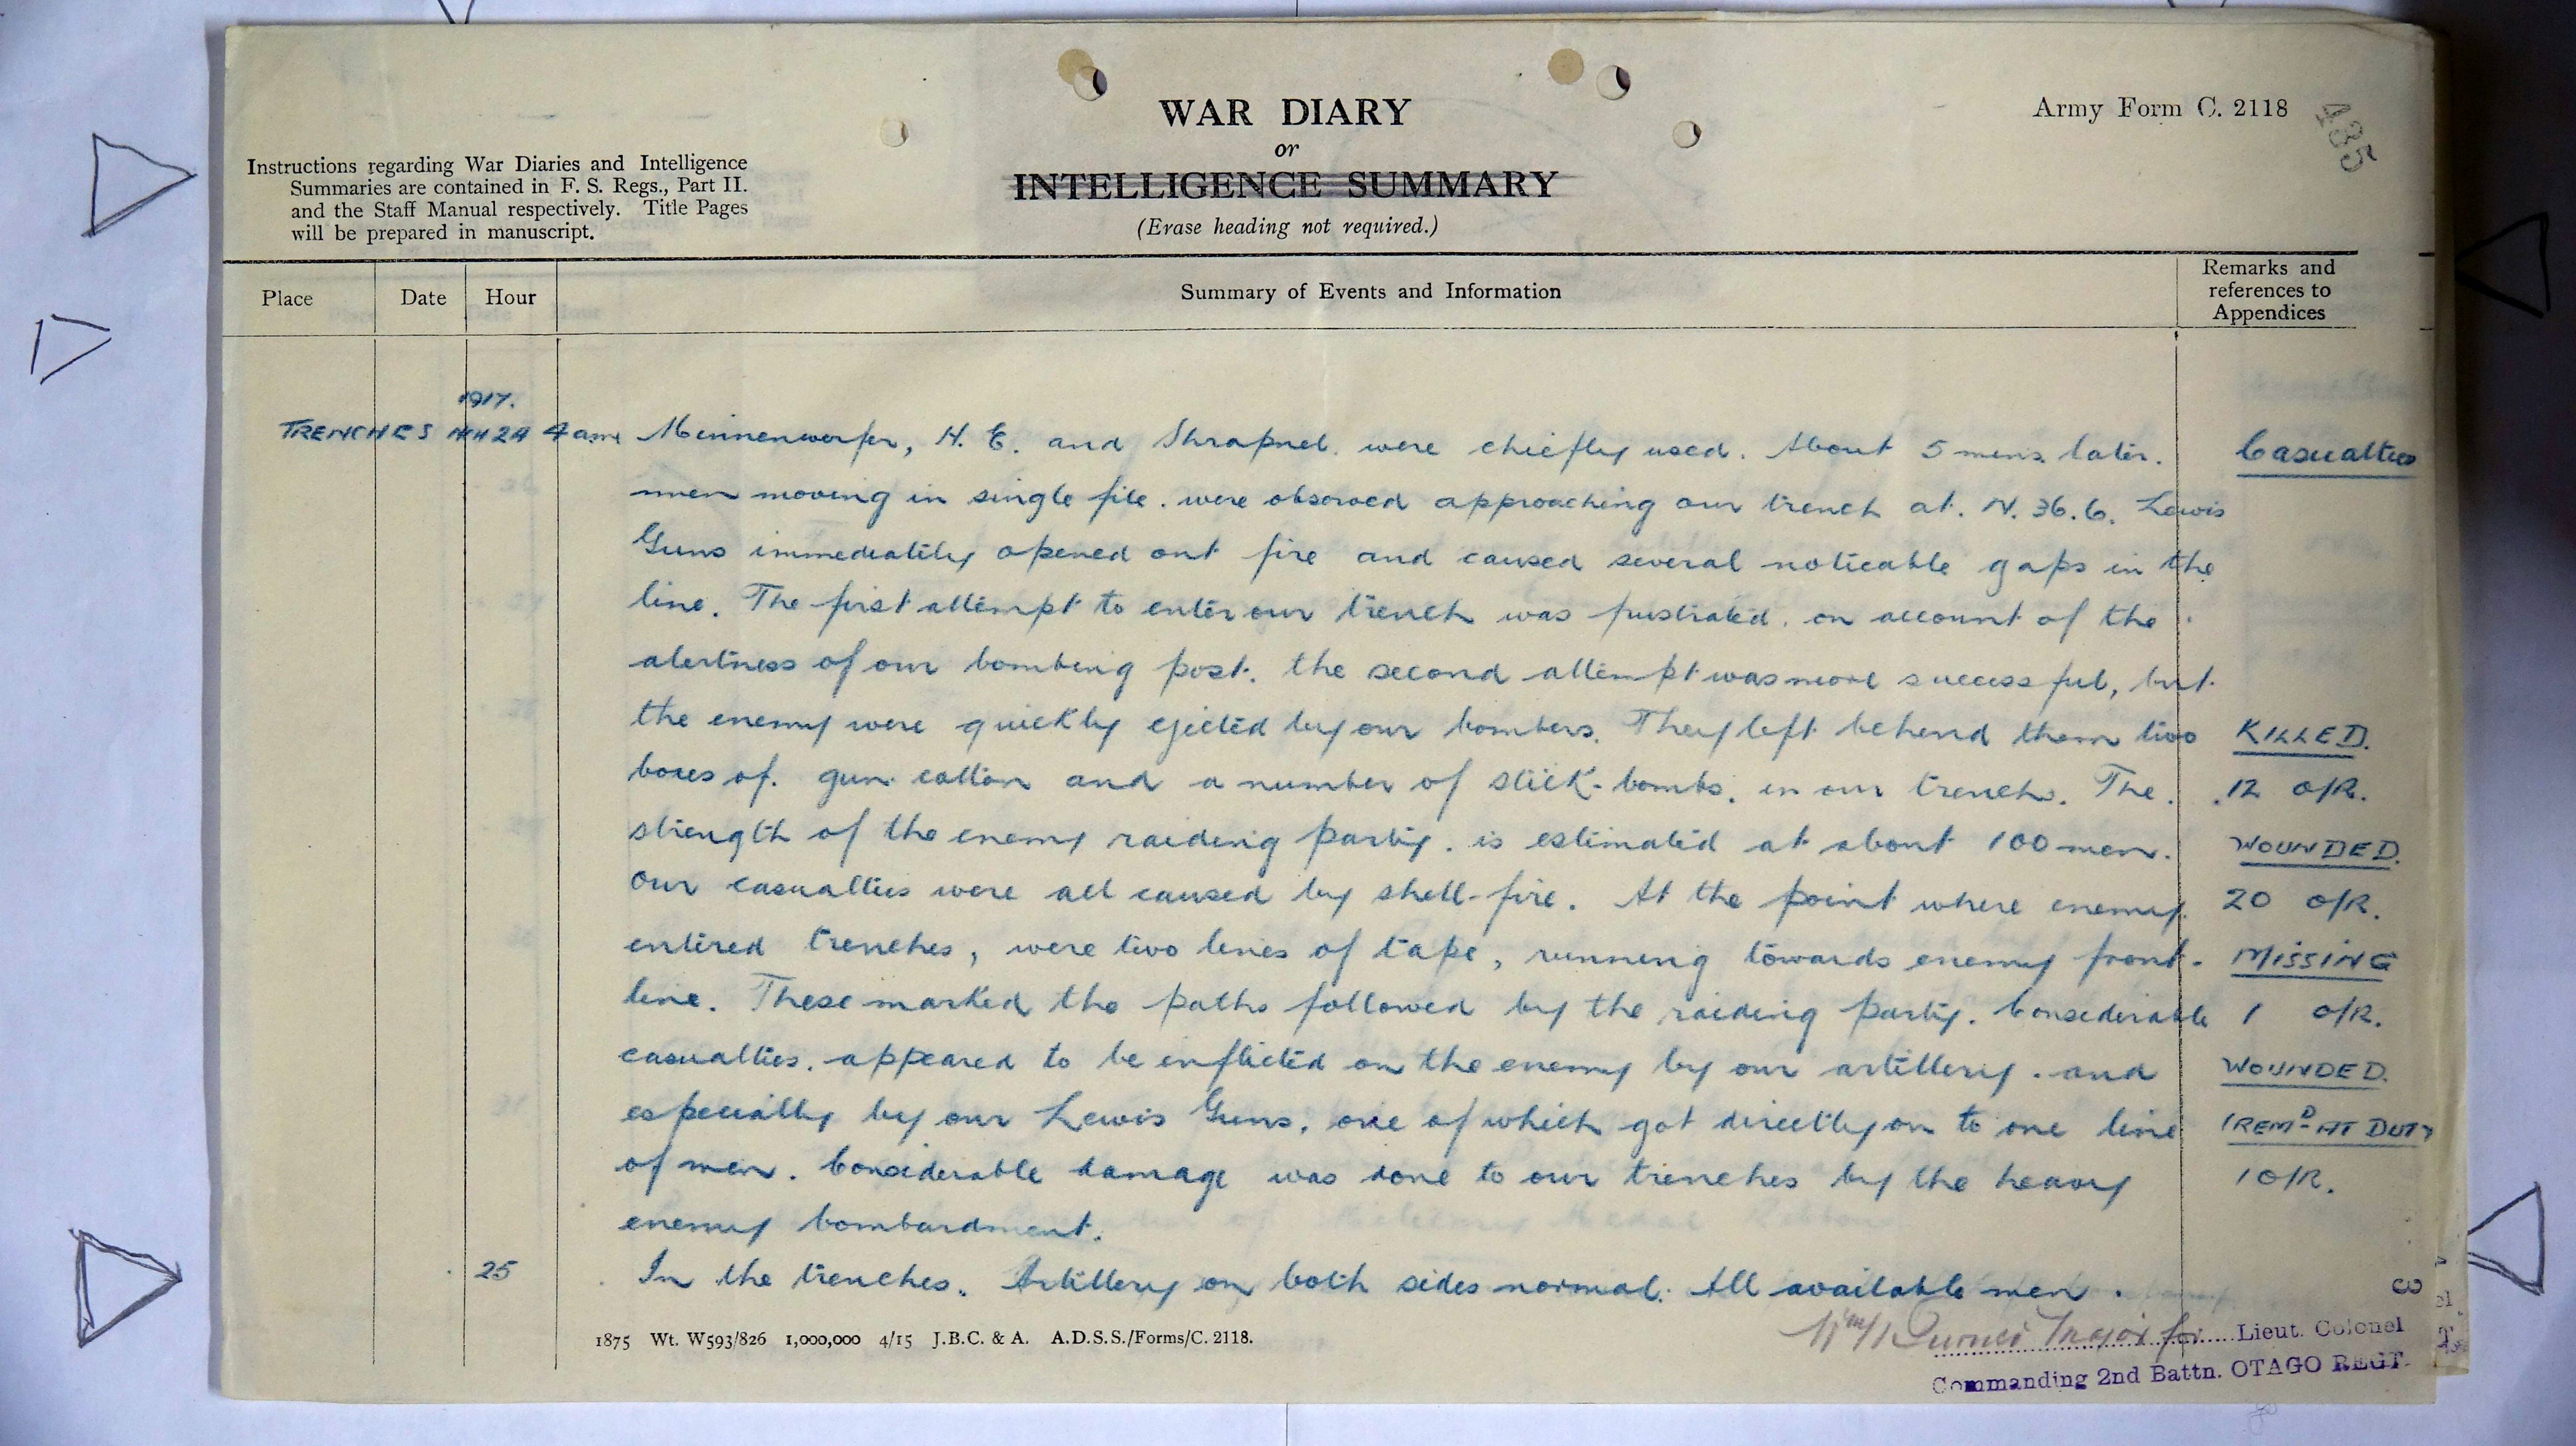 WAR DIARY
or
INTELLIGENCE SUMMARY
(Erase heading not required.)
Army Form C. 2118
435
Instructions regarding War Diaries and Intelligence
Summaries are contained in F. S. Regs., Part II.
and the Staff Manual respectively. Title Pages
will be prepared in manuscript.
Place Date Hour Summary of Events and Information Remarks and references to Appendices
1917.
TRENCHES 24 4 am Minnenwerfer, H. E. and Shrapnel. were chiefly used. About 5 mins. later. Casualties
men moving in single file. were observed approaching our trench at. N. 36. 6. Lewis
Guns immediately opened out fire and caused several noticable gaps in the
line. The first attempt to enter our trench was fustrated. on account of the
alertness of our bombing post. the second attempt was more successful, but
the enemy were quickly ejected by our bombers. They left behind them two KILLED.
boxes of. gun cotton and a number of stick-bombs. in our trench. The. 12 O/R.
strength of the enemy raiding party. is estimated at about 100 men. WOUNDED.
Our casualties were all caused by shell-fire. At the point where enemy 20 O/R.
entered trenches, were two lines of tape, running towards enemy front- MISSING
line. These marked the paths followed by the raiding party. Considerable 1 O/R.
casualties. appeared to be inflicted on the enemy by our artillery. and WOUNDED.
especially by our Lewis Guns, one of which got directly on to one line (REMD AT DUTY
of men. Considerable damage was done to our trenches by the heavy 1 O/R.
enemy bombardment.
25 In the trenches. Artillery on both sides normal. All available men.
1875 Wt. W593/826 1,000,000 4/15 J.B.C. & A. A.D.S.S./Forms/C. 2118.
Major for Lieut. Colonel
Commanding 2nd Battn. OTAGO REGT.
3